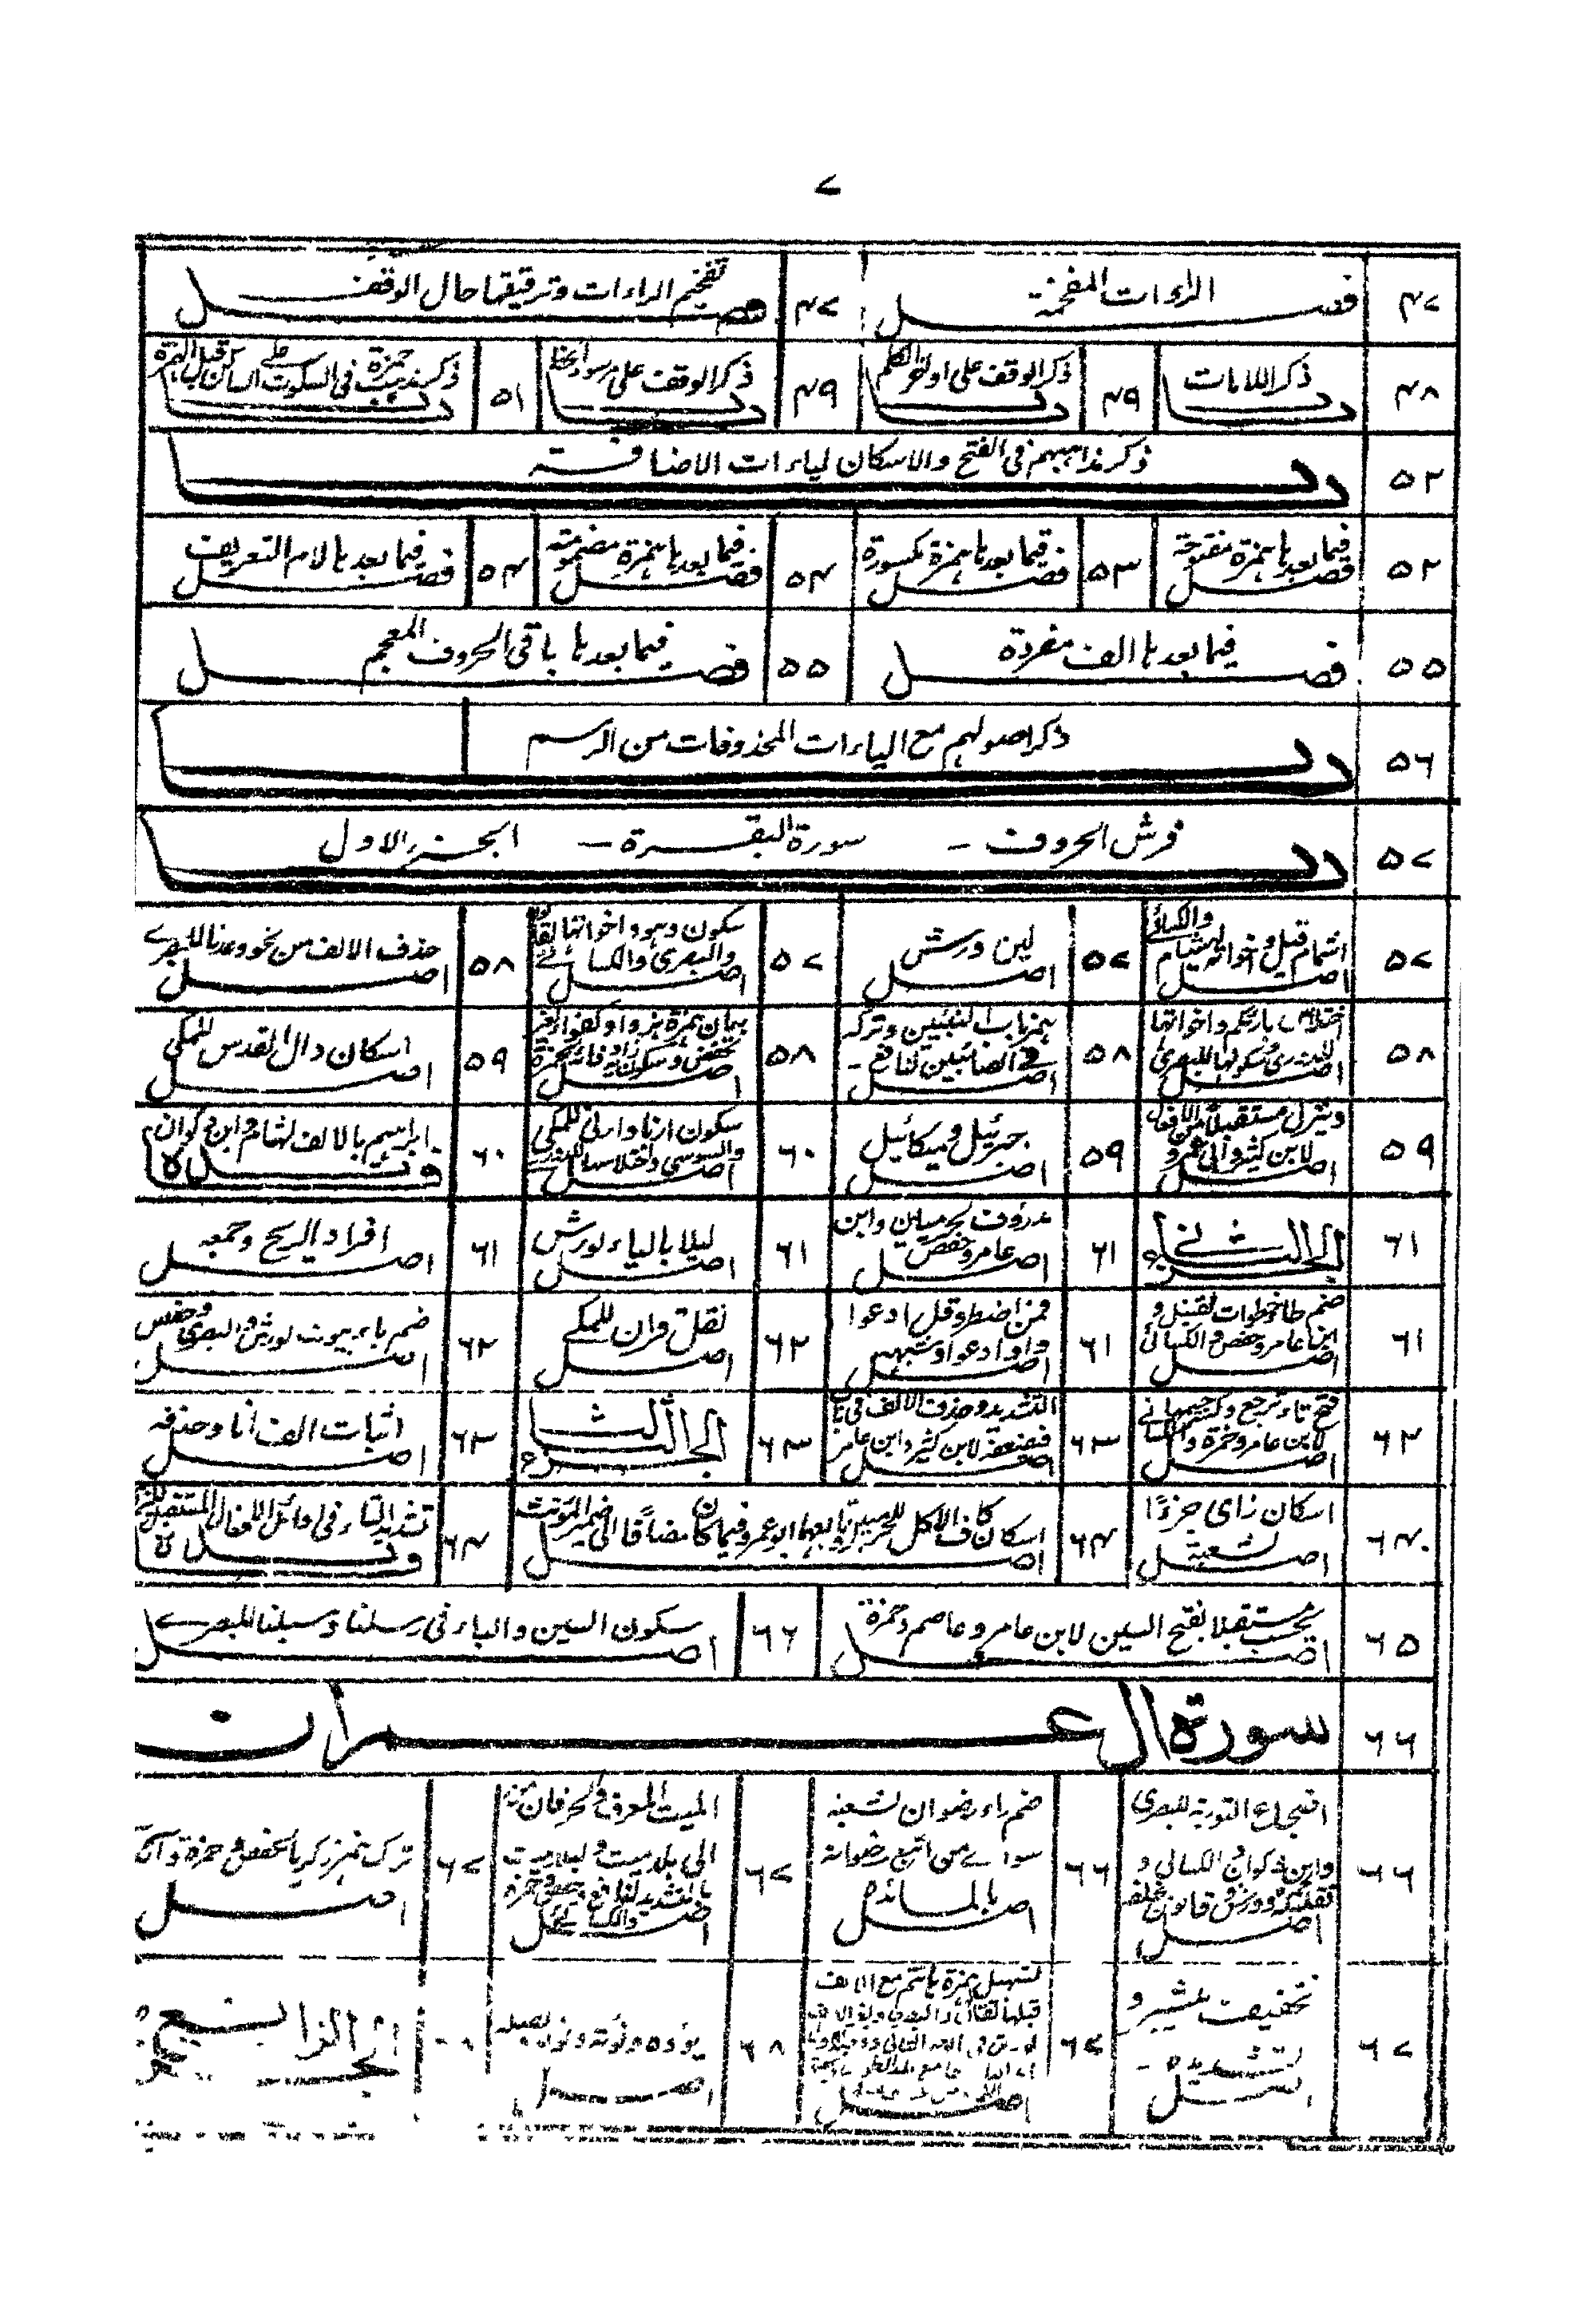 ۷
۴۷ فصل الراءات المفخمة
۴۷ فصل تفخيم الراءات وترقيقها حال الوقف
۴۸ باب ذكر اللامات
۴۹ باب ذكر الوقف على اواخر الكلم
۴۹ باب ذكر الوقف على مرسوم الخط
۵۱ باب ذكر مذهب حمزة في السكوت على الساكن قبل الهمزة
۵۲ باب ذكر مذاهبهم في الفتح والاسكان لياءات الاضافة
۵۲ فصل فيما بعدها همزة مفتوحة
۵۳ فصل فيما بعدها همزة مكسورة
۵۴ فصل فيما بعدها همزة مضمومة
۵۴ فصل فيما بعدها لام التعريف
۵۵ فصل فيما بعدها الف مفردة
۵۵ فصل فيما بعدها باقى الحروف المعجم
۵۶ باب ذكر اصولهم مع الياءات المحذوفات من الرسم
۵۷ باب فرش الحروف - سورة البقرة - الجزء الاول
۵۷ اصل اشمام قيل واخواته لهشام والكسائى
۵۷ اصل لين ورش
۵۷ اصل سكون وهو واخواتها والبصرى والكسائے
۵۸ اصل حذف الالف من نحو وعدنا للبصرے
۵۸ اصل اختلاس بارئكم واخواتها للدورى وسكونها للبصرى
۵۸ اصل همز باب النبيين وتركه فى الصابئين لنافع -
۵۸ اصل بيان همزة هزوا وكفوا
۵۹ اصل اسكان دال القدس للمكى
۵۹ اصل وينزل مستقبلا من الافعال لابن كثير وابى عمرو
۵۹ اصل جبرئيل وميكائيل
۶۰ اصل سكون ارنا وارنى للمكى والسوسى واختلاسها للدورى
۶۰ ابراهيم بالالف لهشام وابن ذكوان
۶۱ الجزء الثانى
۶۱ اصل مد رؤف لحرميين وابن عامر وحفص
۶۱ اصل ليلا بالياء لورش
۶۱ اصل افراد الريح وجمعه
۶۱ اصل ضم طا خطوات لقنبل و ابن عامر وحفص والكسائى
۶۱ اصل فمن اضطر وقل ادعوا واو ادعوا وشبهه
۶۲ اصل نقل قران للمكے
۶۲ اصل ضم باء بيوت لورش والبصرى وحفص
۶۲ اصل فتح تاء ترجع وكسر جيمها لابن عامر وحمزة والكسائى
۶۳ اصل التشديد وحذف الالف فى باب فيضعفه لابن كثير وابن عامر
۶۳ الجزء الثالث
۶۳ اصل اثبات الف انا وحذفه
۶۴ اصل اسكان زاى جزءًا لشعبة
۶۴ اصل اسكان كاف الاكل للحرميين وتابعهما ابو عمرو فيما كان مضافا الى ضمير المؤنث
۶۴ تشديد التاء فى اوائل الافعال المستقبلة
۶۵ اصل يحسب مستقبلا بفتح السين لابن عامر وعاصم وحمزة
۶۶ اصل سكون السين والباء فى رسلنا وسبلنا للبصرے
۶۶ سورة ال عمران
۶۶ اصل اضجاع التورىة للبصرى وابن ذكوان والكسائى و
۶۶ اصل ضم راء رضوان لشعبة سواے من اتبع رضوانه بالمائده
۶۷ اصل الميت المعرف والحرفان الى بلد ميت ولبلد ميت بالتشديد لنافع وحفص وحمزة والكسائے
۶۷ اصل ترك همز زكريا لحفص وحمزة و
۶۷ اصل تخفيف يبشر و تشديده -
۶۷ اصل تسهيل همزة هانتم مع الالف قبلها
۶۸ اصل يؤده ونؤته ونوله ونصله
الجزء الرابع